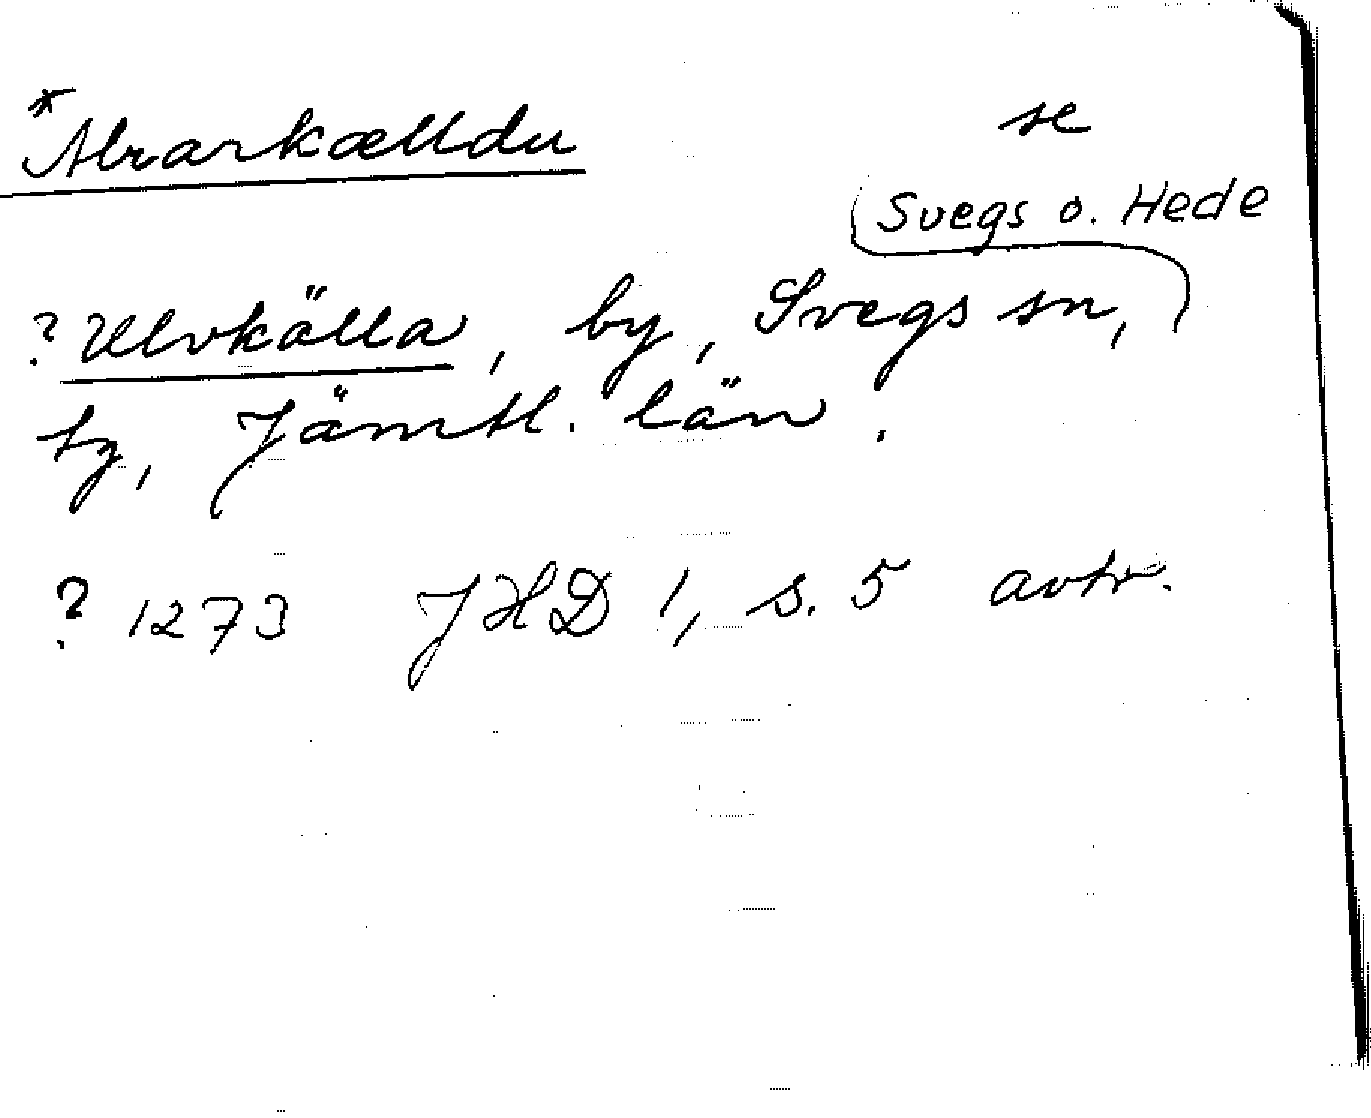 *Alvarkælldu se
Svegs o. Hede
? Ulvkälla, by, Svegs sn,
tg, Jämtl. län.
? 1273 JHD 1, s. 5 avtr.